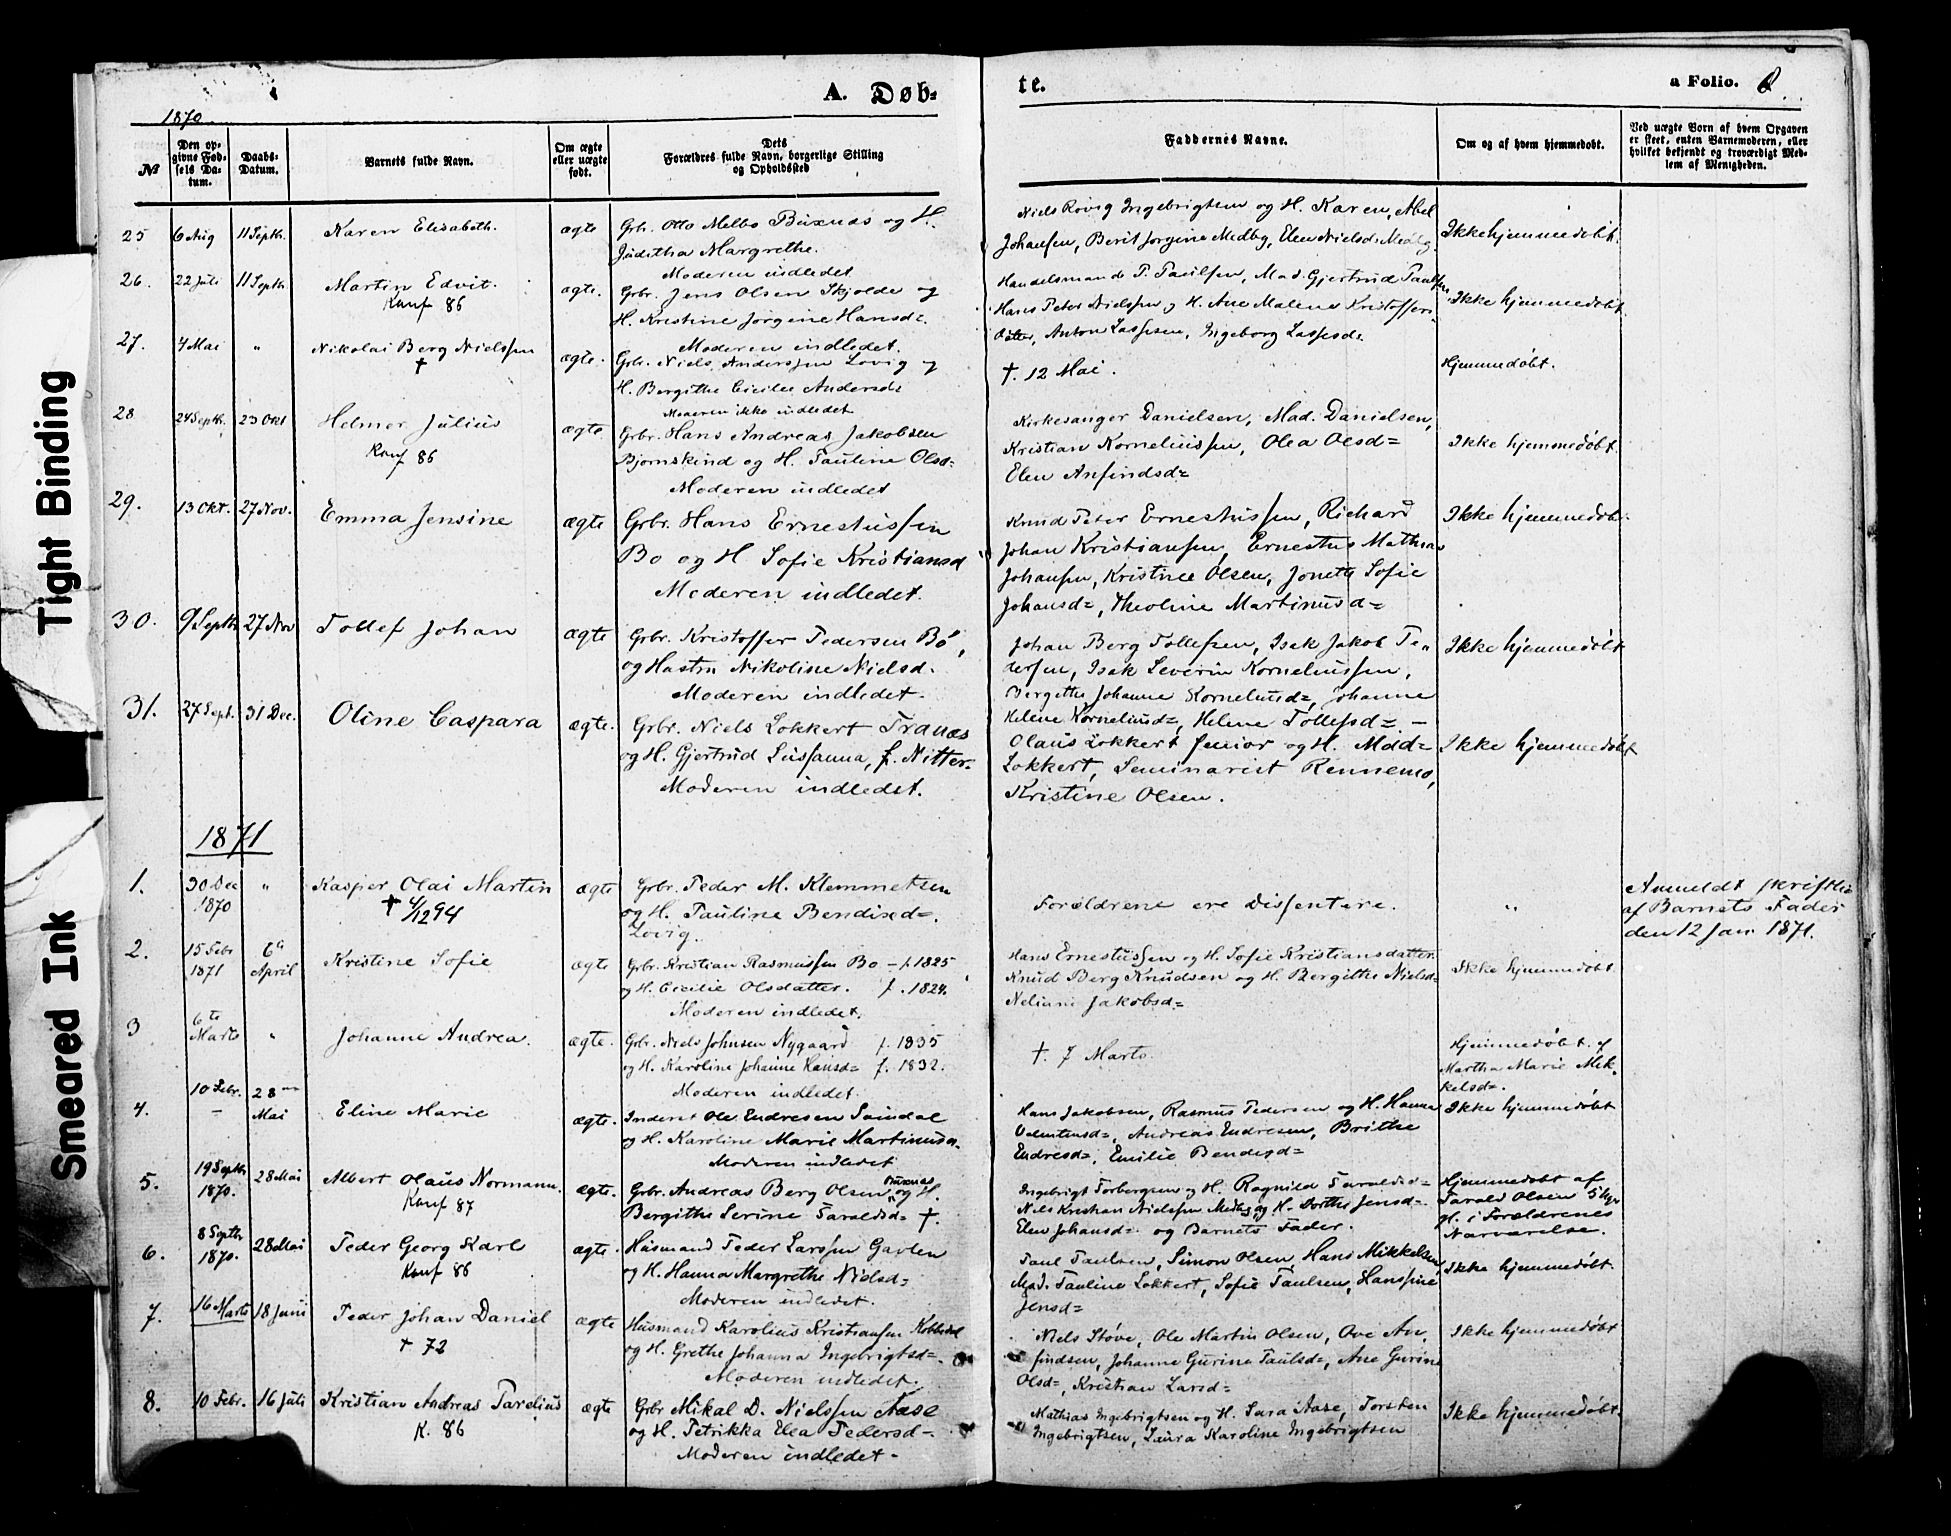 Tight Binding
Smeared Ink
A. Døb=
te.
a Folio.
1870
№
Den op-
givne Fød-
sels Da-
tum.
Daabs-
Datum.
Barnets fulde Navn.
Om ægte
eller uægte
født.
Dets
Forældres fulde Navn, borgerlige Stilling
og Opholdssted
Faddernes Navne.
Om og af hvem hjemmedøbt.
Ved uægte Born af hvem Opgaven
er skeet, enten Barnemoderen, eller
hvilket bekjendt og troværdigt Med-
lem af Menigheden.
25 6 Aug 11 Septh. Karen Elisabeth. ægte
Grb. Otto Melbo Buxnæs og H.
Juditha Margrethe.
Moderen indledet
Niels Rovig Ingebrigtsen og H. Karen, Abel
Johansen, Berit Jorgine Medbg, Elen Nielsd. Medbg.
Ikke hjemmedøbt.
26. 22 Juli 11 Septh Martin Edvit. ægte.
Konf 86
Grb. Jens Olsen Skjolde og
H. Kristine Jørgine Hansd=.
Moderen indledet.
Handelsmand P. Paulsen, Mad. Gjertrud Paulsen,
Hans Peter Nielssen og H. Ane Malene Kristoffers-
datter, Anton Lassesen, Ingeborg Lassesd=
Ikke hjemmedøbt
27. 4 Mai " Nikolai Berg Nielssen ægte.
†
Grb. Niels Anderssen Lovig og
H. Bergithe Cicilie Andersd=
Moderen ikke indledet
†. 12 Mai.
Hjemmedøbt.
28 24 Septh. 23 Okt Helmer Julius ægte
Konf 86
Grb. Hans Andreas Jakobsen
Bjornskind og H. Pauline Olsd=
Moderen indledet
Kirkesanger Danielsen, Mad. Danielsen,
Kristian Korneliussen, Olea Olsd=
Elen Anfindsd=
Ikke hjemmedøbt.
29. 13 Okt. 27 Nov. Emma Jensine ægte
Grbr. Hans Ernestussen
Bo og H Sofie Kristiansd
Moderen indledet.
Knud Peter Ernestussen, Richard
Johan Kristiansen, Ernestus Mathias
Johansen, Kristine Olsen, Jonette Sofie
Johansd=, Theoline Martinusd=
Ikke hjemmedøbt.
30. 9 Septh 27 Nov Tollef Johan ægte
Grbr. Kristoffer Pedersen Bø,
og Hustru Nikoline Nielsd.
Moderen indledet.
Johan Berg Tollefsen, Isak Jakob Pe-
dersen, Isak Severin Korneliussen,
Bergithe Johanne Korneliusd=, Johanne
Helene Korneliusd=, Helene Tollefsd= -
Ikke hjemmedøbt
31. 27 Sept. 31 Dec. Oline Caspara ægte.
Grbr. Niels Lokkert Tranæs
og H. Gjertrud Sussanna, f. Nitter-
Moderen indledet.
Olaus Lokkert senior og H. Mad=
Lokkert, Seminarist Rennemo,
Kristine Olsen.
Ikke hjemmedøbt
1871
1. 30 Dec " Kasper Olai Martin ægte
1870
† 4/12 94
Grbr. Peder M. Klemmetsen
og H. Pauline Bendixd=.
Lovig.
Forældrene ere Dissentere.
"
Anmeldt skriftli=
af Barnets Fader
den 12 Jan 1871.
2. 15 Febr 6te Kristine Sofie ægte
1871 April
Grbr. Kristian Rasmussen Bo - f. 1825
og H. Cicilie Olsdatter. f. 1824.
Moderen indledet.
Hans Ernestussen og H. Sofie Kristiansdatter.
Knud Berg Knudsen og H. Bergithe Nielsd=
Neliane Jakobsd=
Ikke hjemmedøbt
3 6te " Johanne Andrea. ægte.
Marts
Grbr. Niels Johnsen Nygaard f. 1835
og H. Karoline Johanne Hansd= f. 1832.
Moderen indledet.
†. 7 Marts.
Hjemmedøbt. af
Martha Marie Mik-
kelsd=.
4. 10 Febr. 28 Eline Marie ægte.
- Mai
Inderst Ole Endresen Sundal
og H. Karoline Marie Martinusd.
Moderen indledet
Hans Jakobsen, Rasmus Pedersen og H. Hanna
Valentinsd=, Andreas Endresen, Brithe
Endresd=, Emilie Bendixd=
Ikke hjemmedøbt
5. 19 Septh 28 Mai Albert Olaus Normann. ægte.
1870.
Konf 87
Grbr. Andreas Berg Olsen Buxnæs og H.
Bergithe Serine Taraldsd= †.
Ingebrigt Torbergsen og H. Ragnild Taraldsd=
Nils Kristian Nielssen Medbg og H. Dorthe Jensd=
Elen Johansd= og Barnets Fader.
Hjemmedøbt af
Tarald Olsen
gl. i Forældrenes
Nærværelse.
6. 8 Septh 28 Mai Peder Georg Karl ægte.
1870.
Konf 86
Husmand Peder Larssen Gavlen
og H. Hanna Margrethe Nielsd=
Moderen indledet.
Paul Paulsen, Simon Olsen, Hans Mikkelsen
Mad. Pauline Lokkert, Sofie Paulsen, Hansine
Jensd=
Ikke hjemmedøbt.
7. 16 Marts 18 Juni Peder Johan Daniel ægte
† 72
Husmand Karolius Kristiansen Kobbedal
og H. Grethe Johanna Ingebrigtsd=.
Moderen indledet.
Niels Støve, Ole Martin Olsen, Ove An-
findsen, Johanne Gurine Paulsd=, Ane Gurine
Olsd=, Kristian Larsd=
Ikke hjemmedøbt
8. 10 Febr. 16 Juli Kristian Andreas Parelius ægte
K. 86
Grbr Mikal D. Nielssen Aase
og H. Petrikka Elea Pedersd=
Moderen indledet-
Mathias Ingebrigtsen og H. Sara Aase, Torsten
Ingebrigtsen, Laura Karoline Ingebrigtsen
Ikke hjemmedøbt.